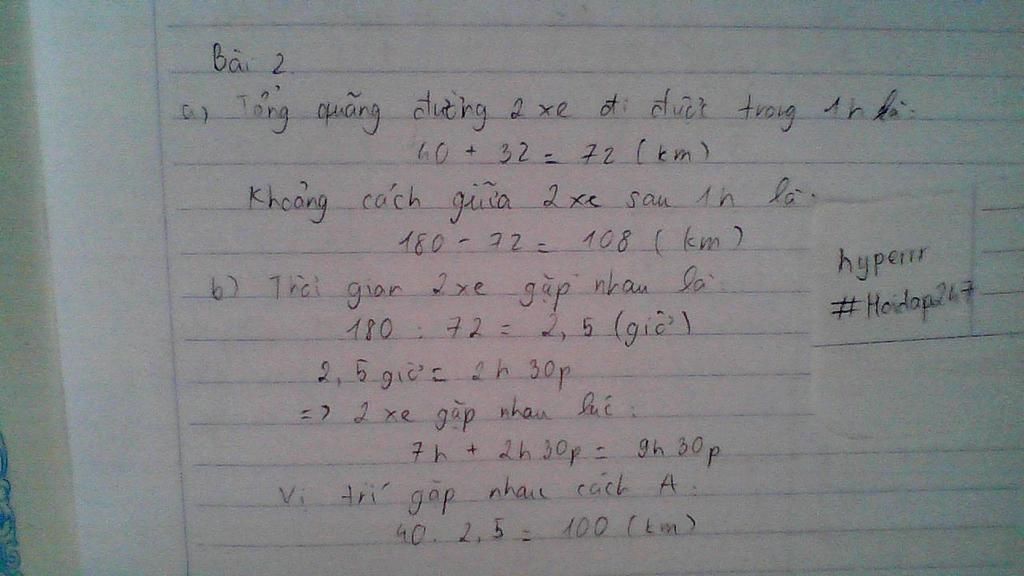 Bài 2
a) Tổng quãng đường 2 xe đi được trong 1h là:
40 + 32 = 72 (km)
Khoảng cách giữa 2 xe sau 1h là:
180 - 72 = 108 (km)
b) Thời gian 2 xe gặp nhau là
180 : 72 = 2,5 (giờ)
2,5 giờ = 2h 30p
=> 2 xe gặp nhau lúc:
7h + 2h 30p = 9h 30p
Vị trí gặp nhau cách A:
40. 2,5 = 100 (km)
hyperrr
#Hoidap247